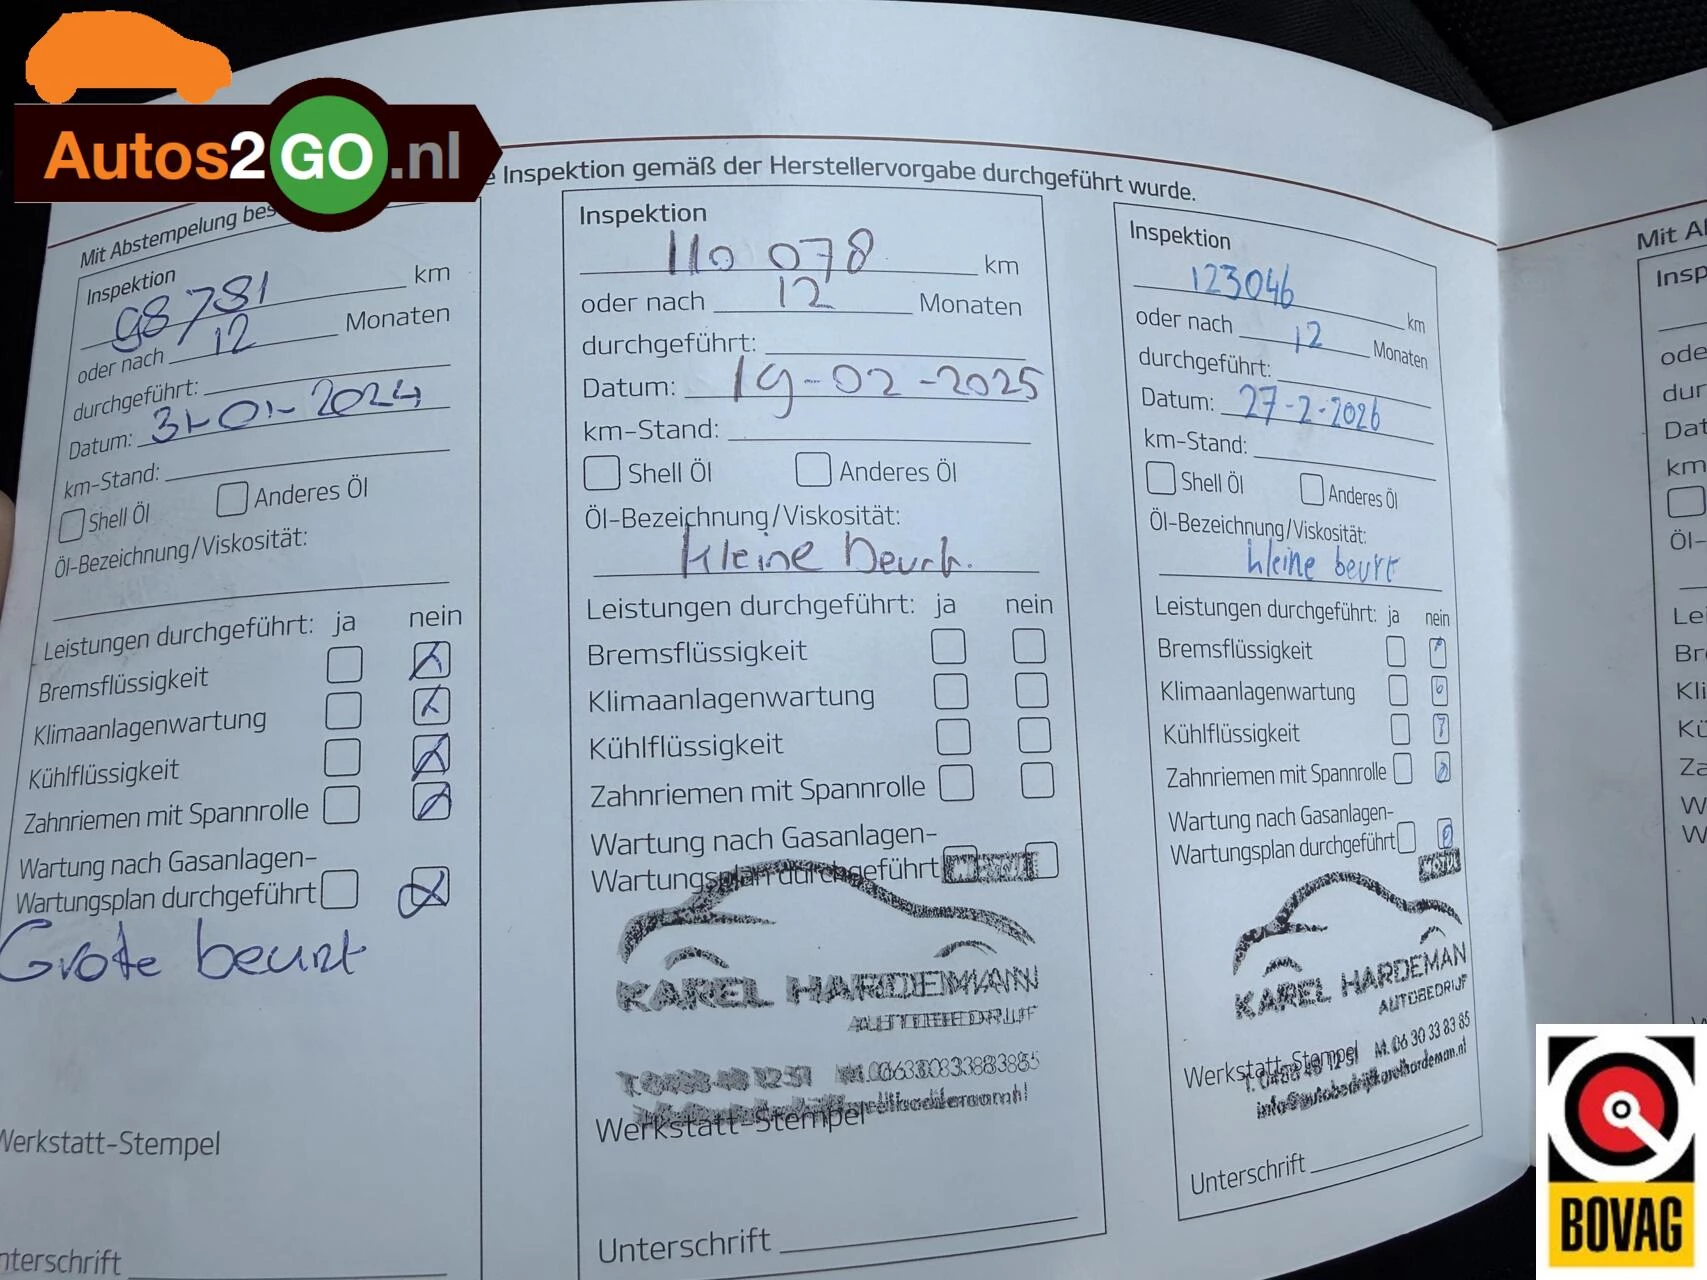 Autos2GO.nl
e Inspektion gemäß der Herstellervorgabe durchgeführt wurde.
Mit Abstempelung bes
Inspektion
98781 km
oder nach 12 Monaten
durchgeführt:
Datum: 31-01-2024
km-Stand:
Shell Öl Anderes Öl
Öl-Bezeichnung/Viskosität:
Leistungen durchgeführt: ja nein
Bremsflüssigkeit
Klimaanlagenwartung
Kühlflüssigkeit
Zahnriemen mit Spannrolle
Wartung nach Gasanlagen-
Wartungsplan durchgeführt
Grote beurt
Werkstatt-Stempel
nterschrift
Inspektion
110 078 km
oder nach 12 Monaten
durchgeführt:
Datum: 19-02-2025
km-Stand:
Shell Öl Anderes Öl
Öl-Bezeichnung/Viskosität:
kleine beurt.
Leistungen durchgeführt: ja nein
Bremsflüssigkeit
Klimaanlagenwartung
Kühlflüssigkeit
Zahnriemen mit Spannrolle
Wartung nach Gasanlagen-
Wartungsplan durchgeführt
KAREL HARDEMAN
AUTOBEDRIJF
Werkstatt-Stempel
Unterschrift
Inspektion
123046 km
oder nach 12 Monaten
durchgeführt:
Datum: 27-2-2026
km-Stand:
Shell Öl Anderes Öl
Öl-Bezeichnung/Viskosität:
kleine beurt
Leistungen durchgeführt: ja nein
Bremsflüssigkeit
Klimaanlagenwartung
Kühlflüssigkeit
Zahnriemen mit Spannrolle
Wartung nach Gasanlagen-
Wartungsplan durchgeführt
KAREL HARDEMAN
AUTOBEDRIJF
M. 06 30 33 83 85
Werkstatt-Stempel
info@autobedrijfkarelhardeman.nl
Unterschrift
Mit Al
Insp
ode
dur
Dat
km
Öl-
Lei
Br
Kli
Kü
Za
W
W
BOVAG